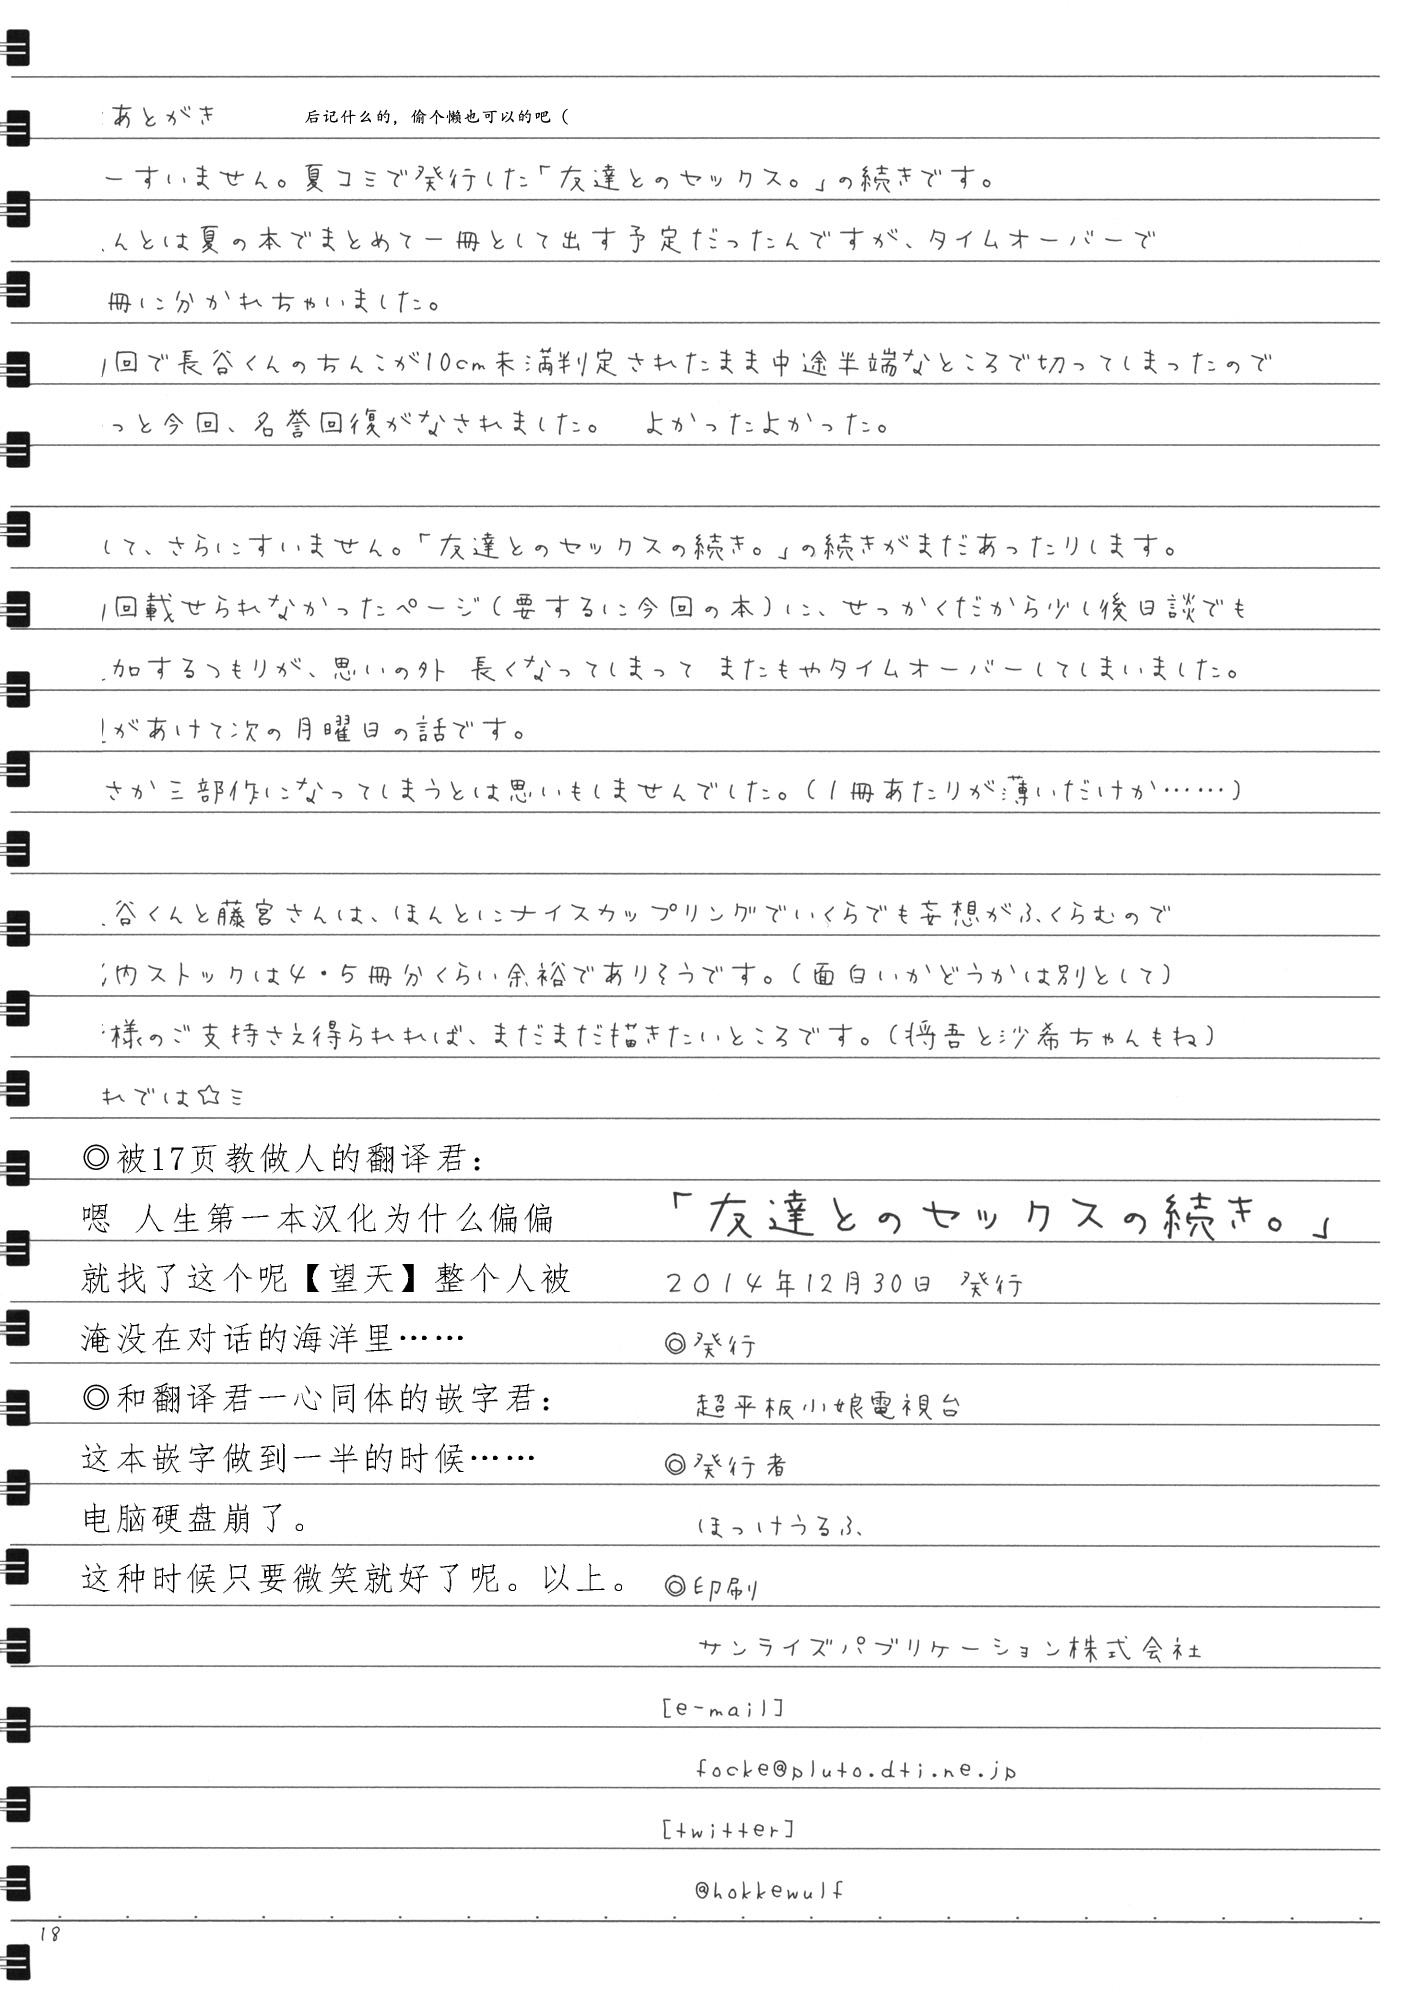 あとがき
后记什么的，偷个懒也可以的吧（
ーすいません。夏コミで発行した「友達とのセックス。」の続きです。
んとは夏の本でまとめて一冊として出す予定だったんですが、タイムオーバーで
冊に分かれちゃいました。
回で長谷くんのちんこが10cm未満判定されたまま中途半端なところで切ってしまったので
っと今回、名誉回復がなされました。 よかったよかった。
して、さらにすいません。「友達とのセックスの続き。」の続きがまだあったりします。
回載せられなかったページ(要するに今回の本)に、せっかくだから少し後日談でも
加するつもりが、思いの外 長くなってしまって またもやタイムオーバーしてしまいました。
があけて次の月曜日の話です。
さか三部作になってしまうとは思いもしませんでした。(1冊あたりが薄いだけか……)
谷くんと藤宮さんは、ほんとにナイスカップリングでいくらでも妄想がふくらむので
内ストックは4・5冊分くらい余裕でありそうです。(面白いかどうかは別として)
様のご支持さえ得られれば、まだまだ描きたいところです。(将吾と沙希ちゃんもね)
れでは☆ミ
◎被17页教做人的翻译君：
嗯 人生第一本汉化为什么偏偏
就找了这个呢【望天】整个人被
淹没在对话的海洋里……
◎和翻译君一心同体的嵌字君：
这本嵌字做到一半的时候……
电脑硬盘崩了。
这种时候只要微笑就好了呢。以上。
「友達とのセックスの続き。」
2014年12月30日 発行
◎発行
超平板小娘電視台
◎発行者
ほっけうるふ
◎印刷
サンライズパブリケーション株式会社
[e-mail]
focke@pluto.dti.ne.jp
[twitter]
@hokkewulf
18